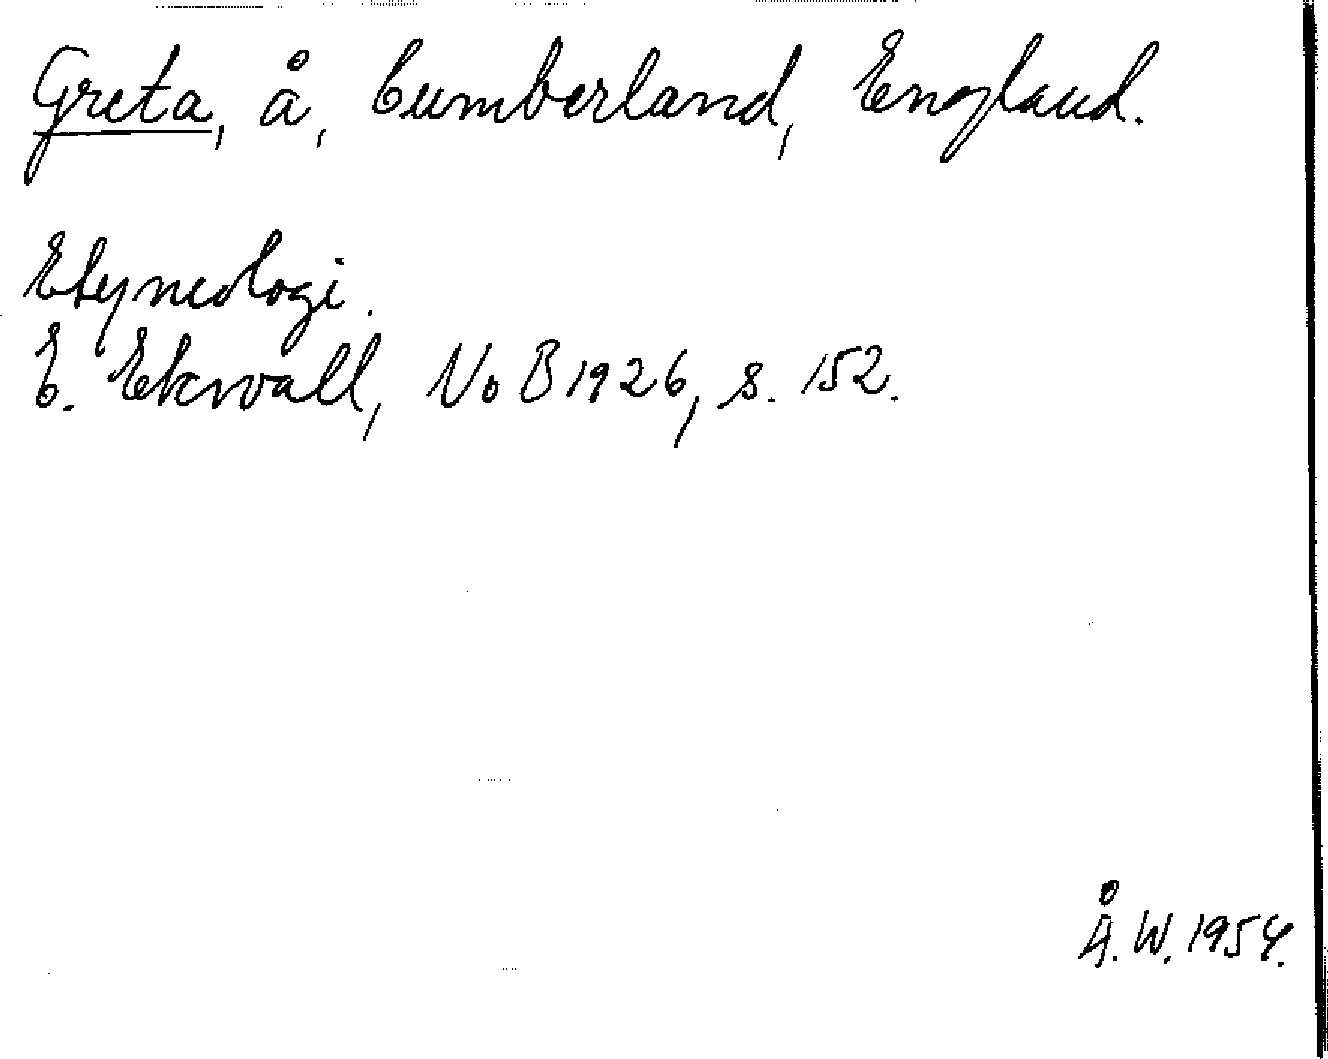 Greta, å, Cumberland, England.
Etymologi.
E. Ekwall, NoB 1926, s. 152.
Å. W. 1954.